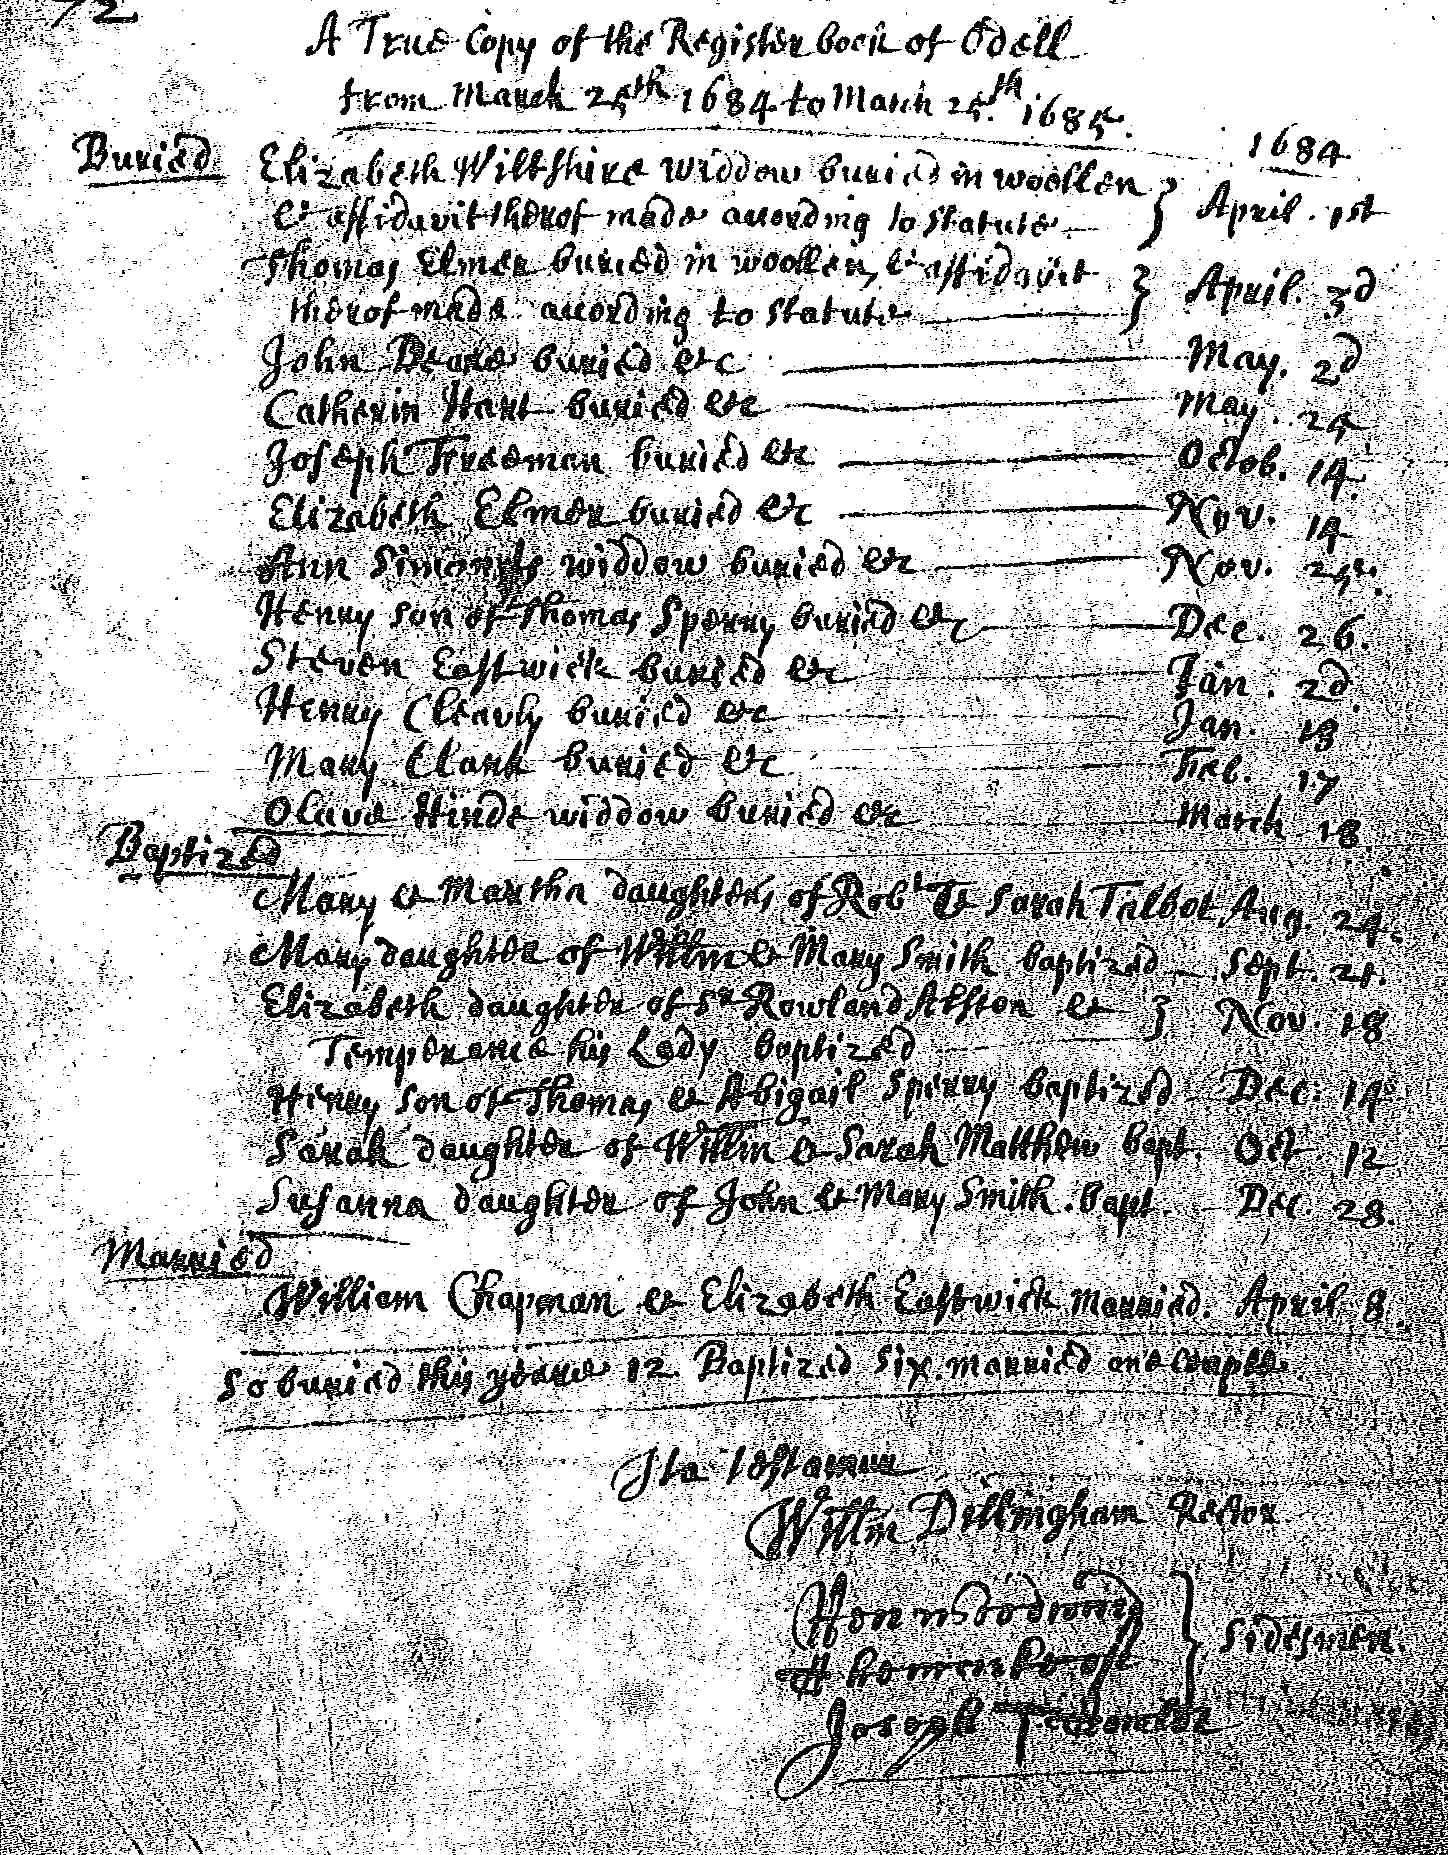 72
A True Copy of the Register book of Odell
from March 25th 1684 to March 25th. 1685.
1684
Buried Elizabeth Wiltshire widdow buried in woollen
& affidavit therof made according to statute } April. 1st
Thomas Elmer buried in woollen, & affidavit
therof made according to statute } April. 3d
John Deane buried &c May. 2d
Catherin Hart buried &c May. 25
Joseph Freeman buried &c Octob. 14.
Elizabeth Elmer buried &c Nov. 14
Ann widdow buried &c Nov. 25.
Henry son of Thomas Sperry buried &c Dec. 26.
Steven Eastwick buried &c Jan. 2d.
Henry Cleavly buried &c Jan. 13
Mary Clark buried &c Feb. 17
Olave Hinde widdow buried &c March 18.
Baptized
Mary & Martha daughters of Robt & Sarah Talbot Aug. 24.
Mary daughter of Willm & Mary Smith baptized Sept. 21.
Elizabeth daughter of Sr Rowland Alston &
Temperance his Lady baptized } Nov. 18
Henry son of Thomas & Abigail Sperry baptized Dec: 14
Sarah daughter of Willm & Sarah Matthew bapt. Oct. 12
Susanna daughter of John & Mary Smith. bapt. Dec. 28.
Married
William Chapman & Elizabeth Eastwick married. April 8.
So buried this yeare 12. Baptized six. married one couple.
Ita testamur
Willm Dillingham Rector
Sidesmen.
Joseph